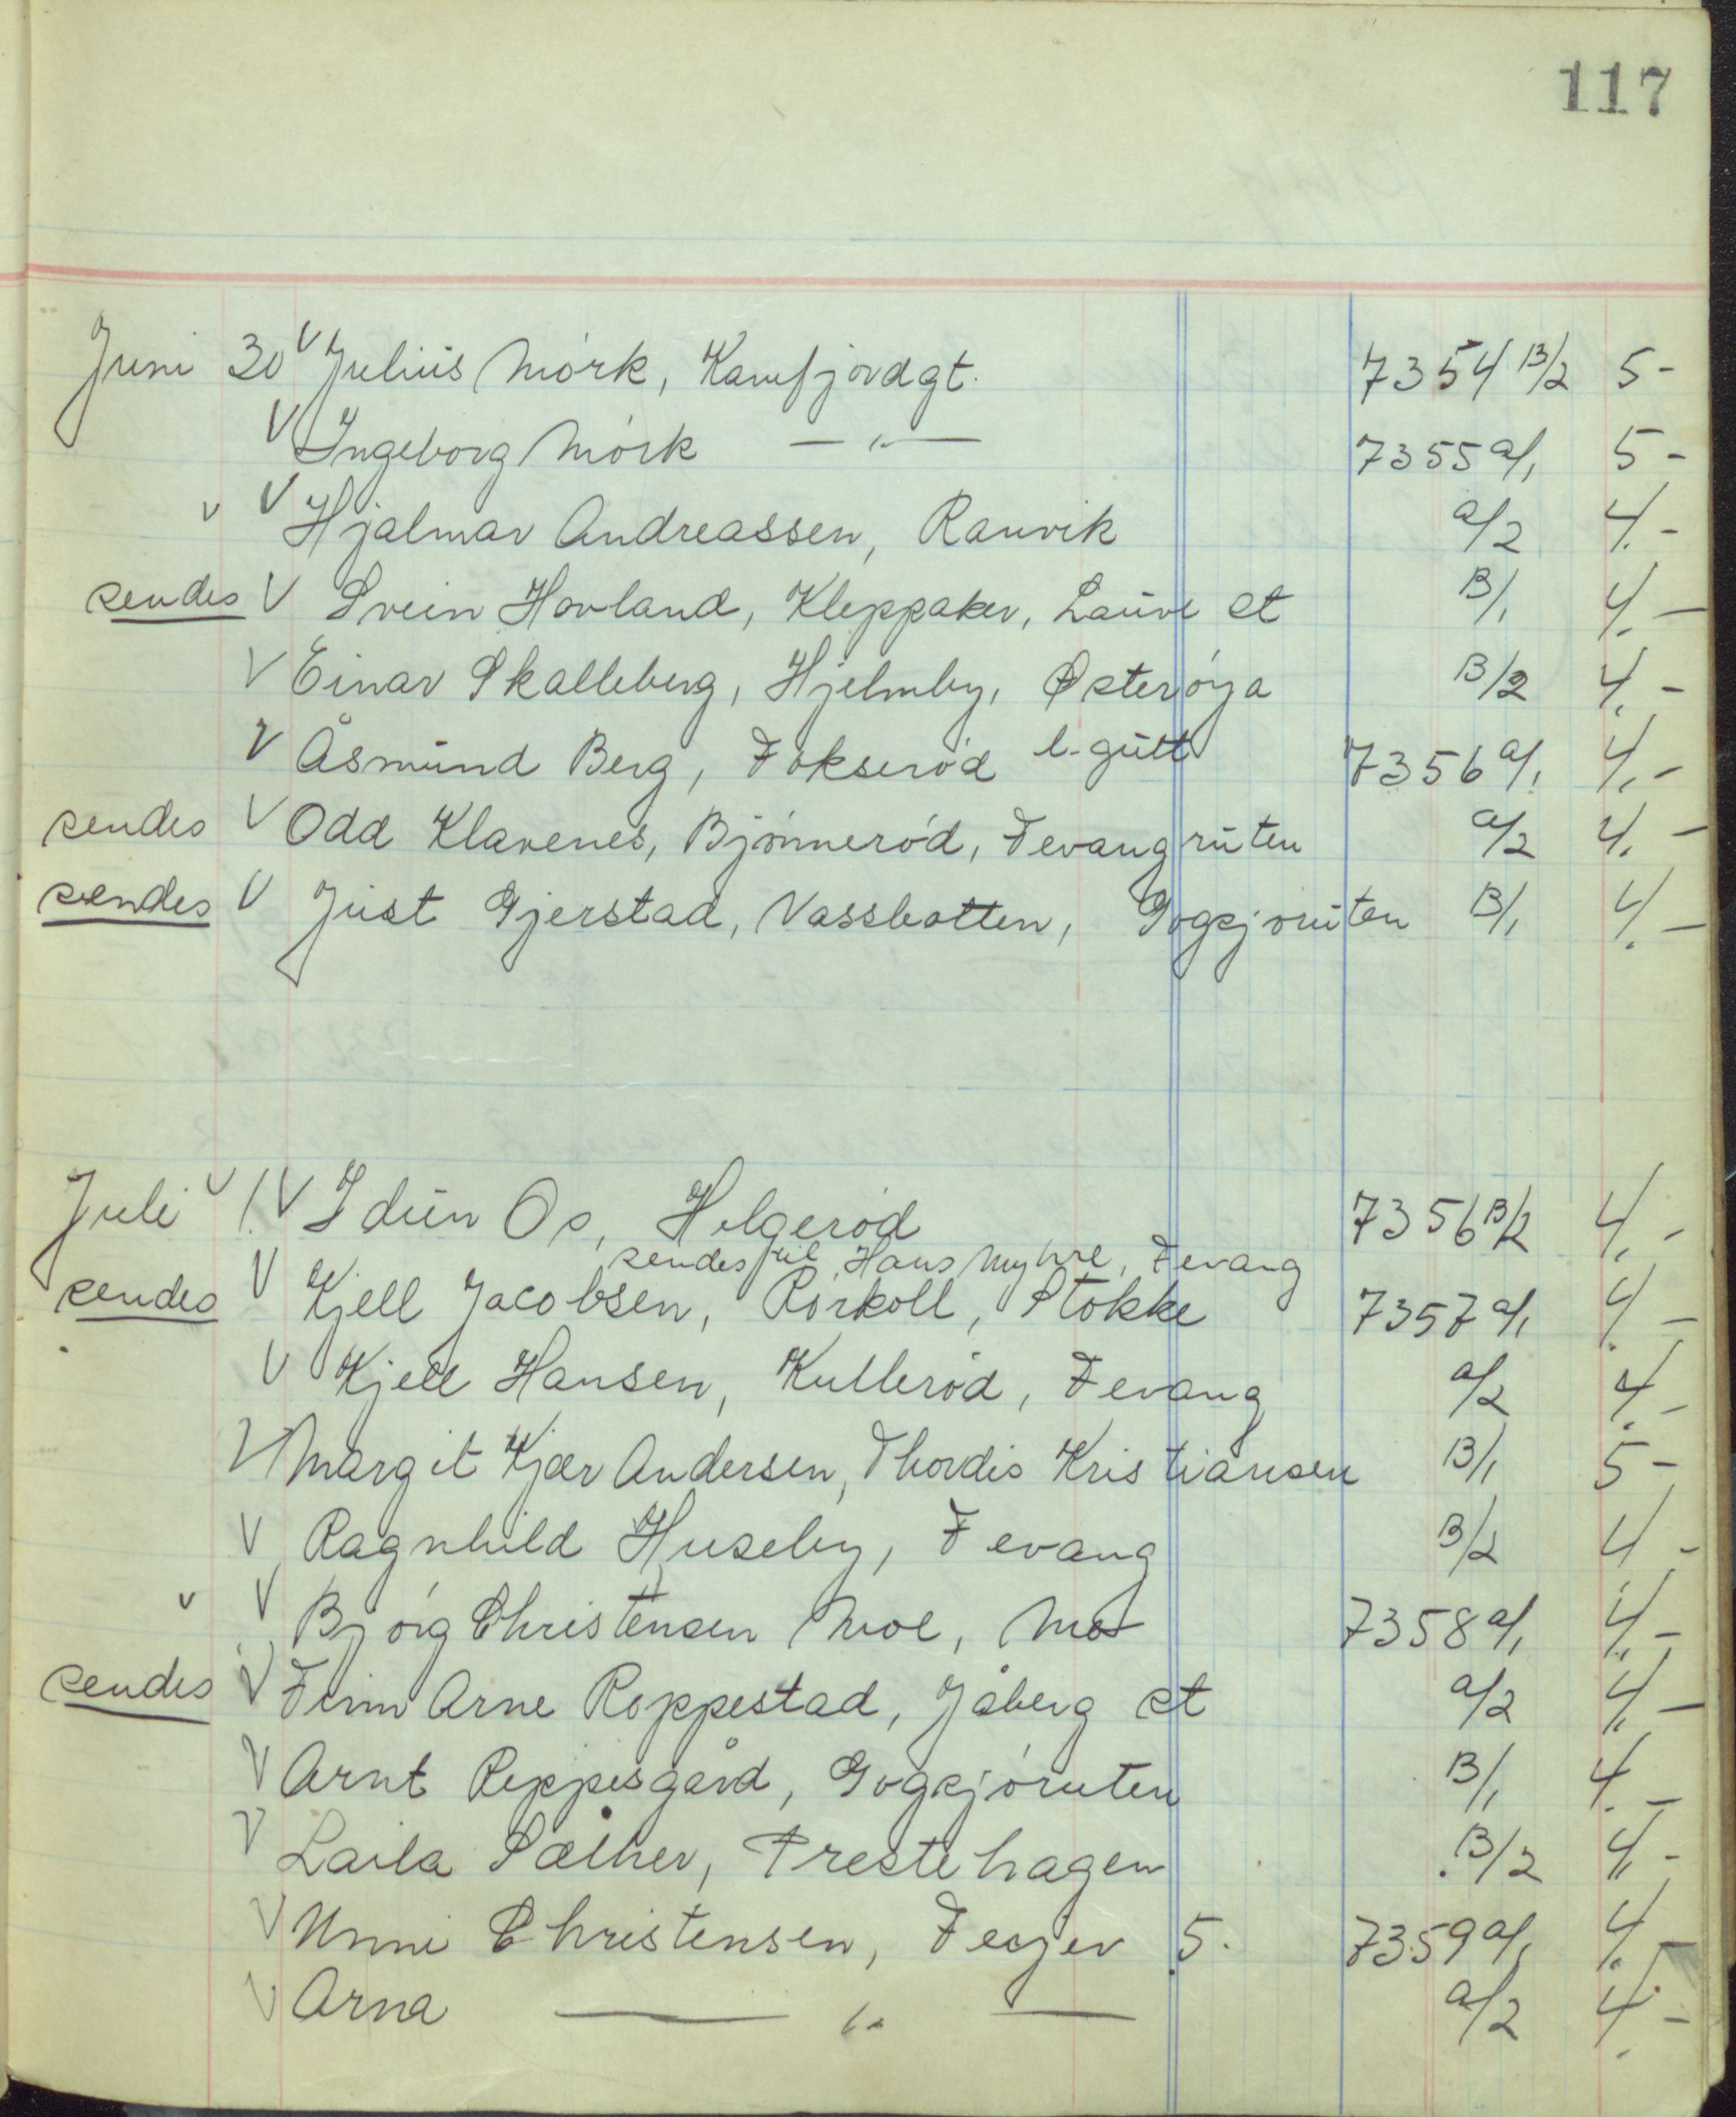 117
Juni 30 V Julius Mörk, Kamfjordgt. 7354 B/2 5-
V Ingeborg Mörk — " — 7355 a/1 5-
v V Hjalmar Andreassen, Ranvik a/2 4.-
sendes V Svein Hovland, Kleppaker, Lauve st B/1 4.-
V Einar Skalleberg, Hjelmby, Østerøya B/2 4.-
V Åsmund Berg, Fokserød l-gutt 7356 a/1 4.-
sendes V Odd Klavenes, Bjønnerød, Fevangruten a/2 4.-
sendes V Just Gjerstad, Vassbotten, Gogsjøruten B/1 4.-
Juli v 1. V Idun Os, Helgerød 7356 B/2 4.-
sendes til Hans Myhre, Fevang
sendes V Kjell Jacobsen, Rørkoll, Stokke 7357 a/1 4.-
V Kjell Hansen, Kullerød, Fevang a/2 4.-
V Margit Kjær Andersen, Thordis Kristiansen B/1 5-
V Ragnhild Huseby, Fevang B/2 4-
v V Bjørg Christensen Moe, Mo 7358 a/1 4.-
sendes V Finn Arne Roppestad, Jåberg st a/2 4.-
V Arnt Reppesgård, Gogsjøruten B/1 4.-
V Laila Sæther, Prestehagen B/2 4.-
V Unni Christensen, Fesjer 5. 7359 a/1 4.-
V Arna — " — a/2 4.-